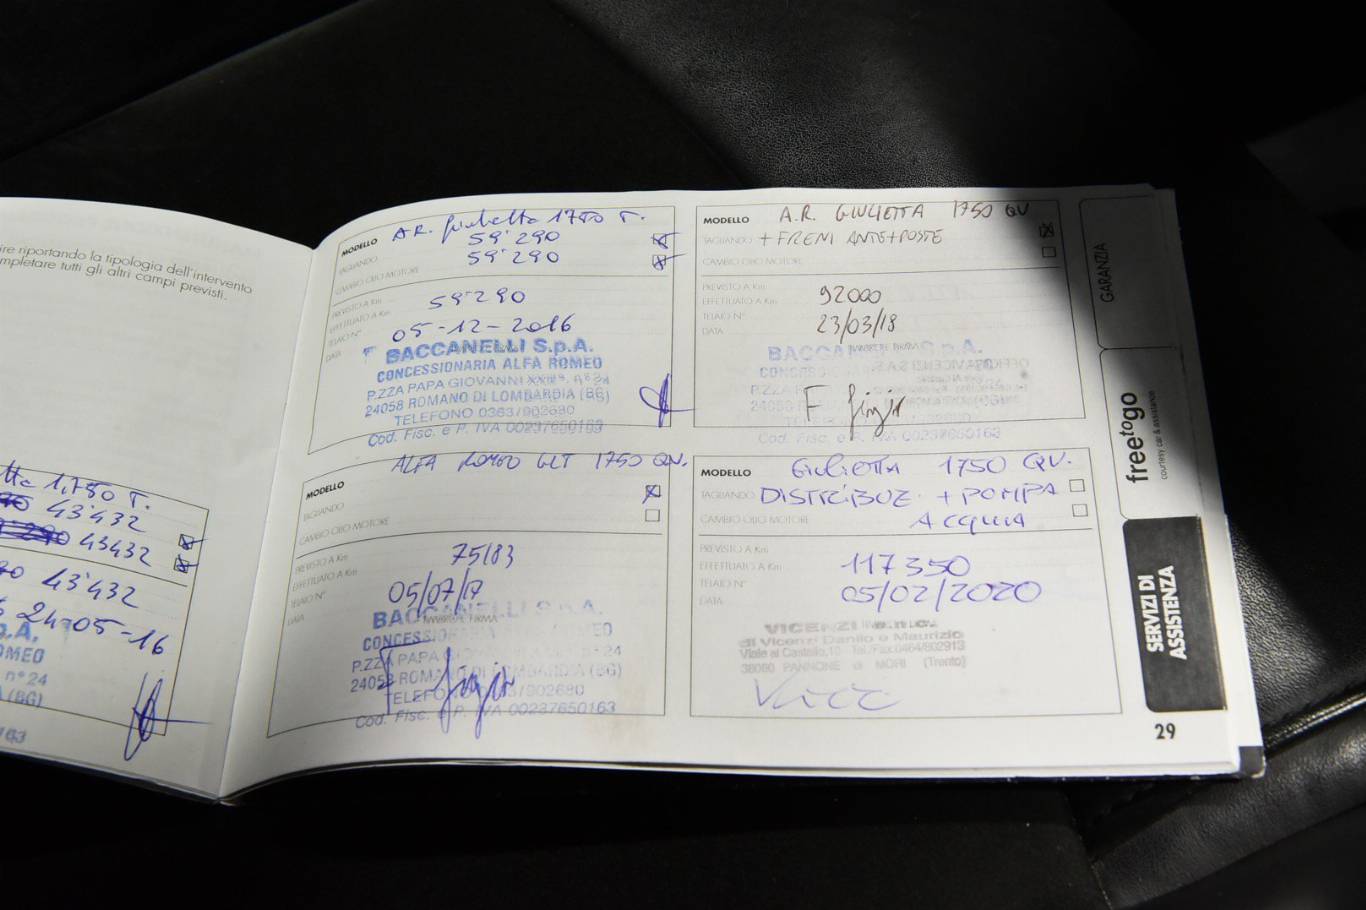 ire riportando la tipologia dell'intervento
mpletare tutti gli altri campi previsti.
1.750 T.
43'432
43432
43'432
24-05-16
p.A.
OMEO
n° 24
(BG)
163
MODELLO A.R. Giulietta 1750 T.
TAGLIANDO 59'290
CAMBIO OLIO MOTORE 59'290
PREVISTO A Km
EFFETTUATO A Km 59'290
TELAIO N°
DATA 05-12-2016
BACCANELLI S.p.A.
CONCESSIONARIA ALFA ROMEO
P.ZZA PAPA GIOVANNI XXIII°, n° 24
24058 ROMANO DI LOMBARDIA (BG)
TELEFONO 0363/902680
Cod. Fisc. e P. IVA 00237650163
MODELLO ALFA ROMEO GLT 1750 QV.
TAGLIANDO
CAMBIO OLIO MOTORE
PREVISTO A Km
EFFETTUATO A Km 75183
TELAIO N°
DATA 05/07/17
BACCANELLI S.p.A.
CONCESSIONARIA ALFA ROMEO
P.ZZA PAPA GIOVANNI n° 24
24058 ROMANO DI LOMBARDIA (BG)
TELEFONO 0363/902680
Cod. Fisc. e P. IVA 00237650163
MODELLO A.R. GIULIETTA 1750 QV
TAGLIANDO + FRENI ANTE+POSTE
CAMBIO OLIO MOTORE
PREVISTO A Km
EFFETTUATO A Km 92000
TELAIO N°
DATA 23/03/18
BACCANELLI S.p.A.
MODELLO GIULIETTA 1750 QV.
TAGLIANDO DISTRIBUZ. + POMPA
CAMBIO OLIO MOTORE ACQUA
PREVISTO A Km
EFFETTUATO A Km 117350
TELAIO N°
DATA 05/02/2020
VICENZI
di Vicenzi Danilo e Maurizio
Viale al Castello,10 Tel./Fax 0464/802913
38060 PANNONE di MORI (Trento)
GARANZIA
freetogo
courtesy car & assistance
SERVIZI DI
ASSISTENZA
29